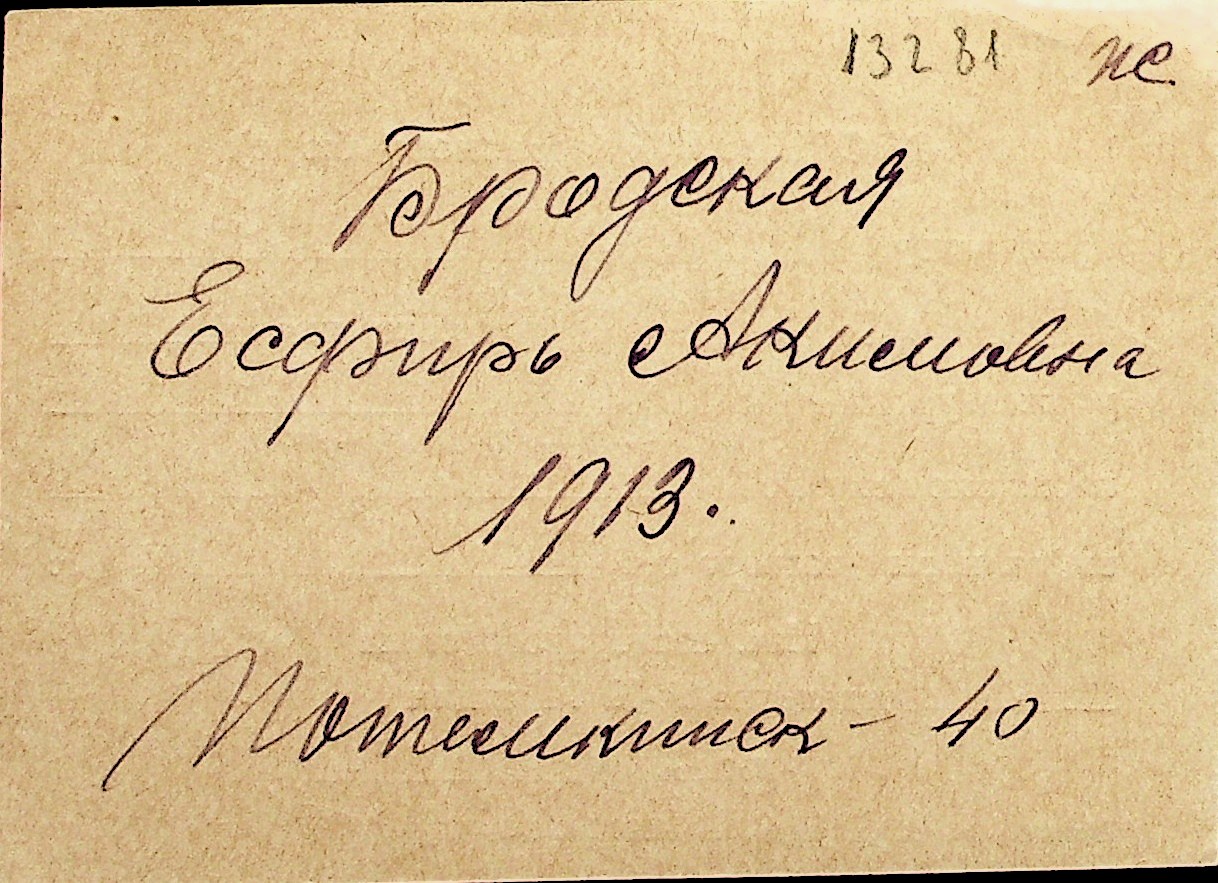 13281 нс
Бродская
Есфирь Акимовна
1913.
Потемкинск - 40